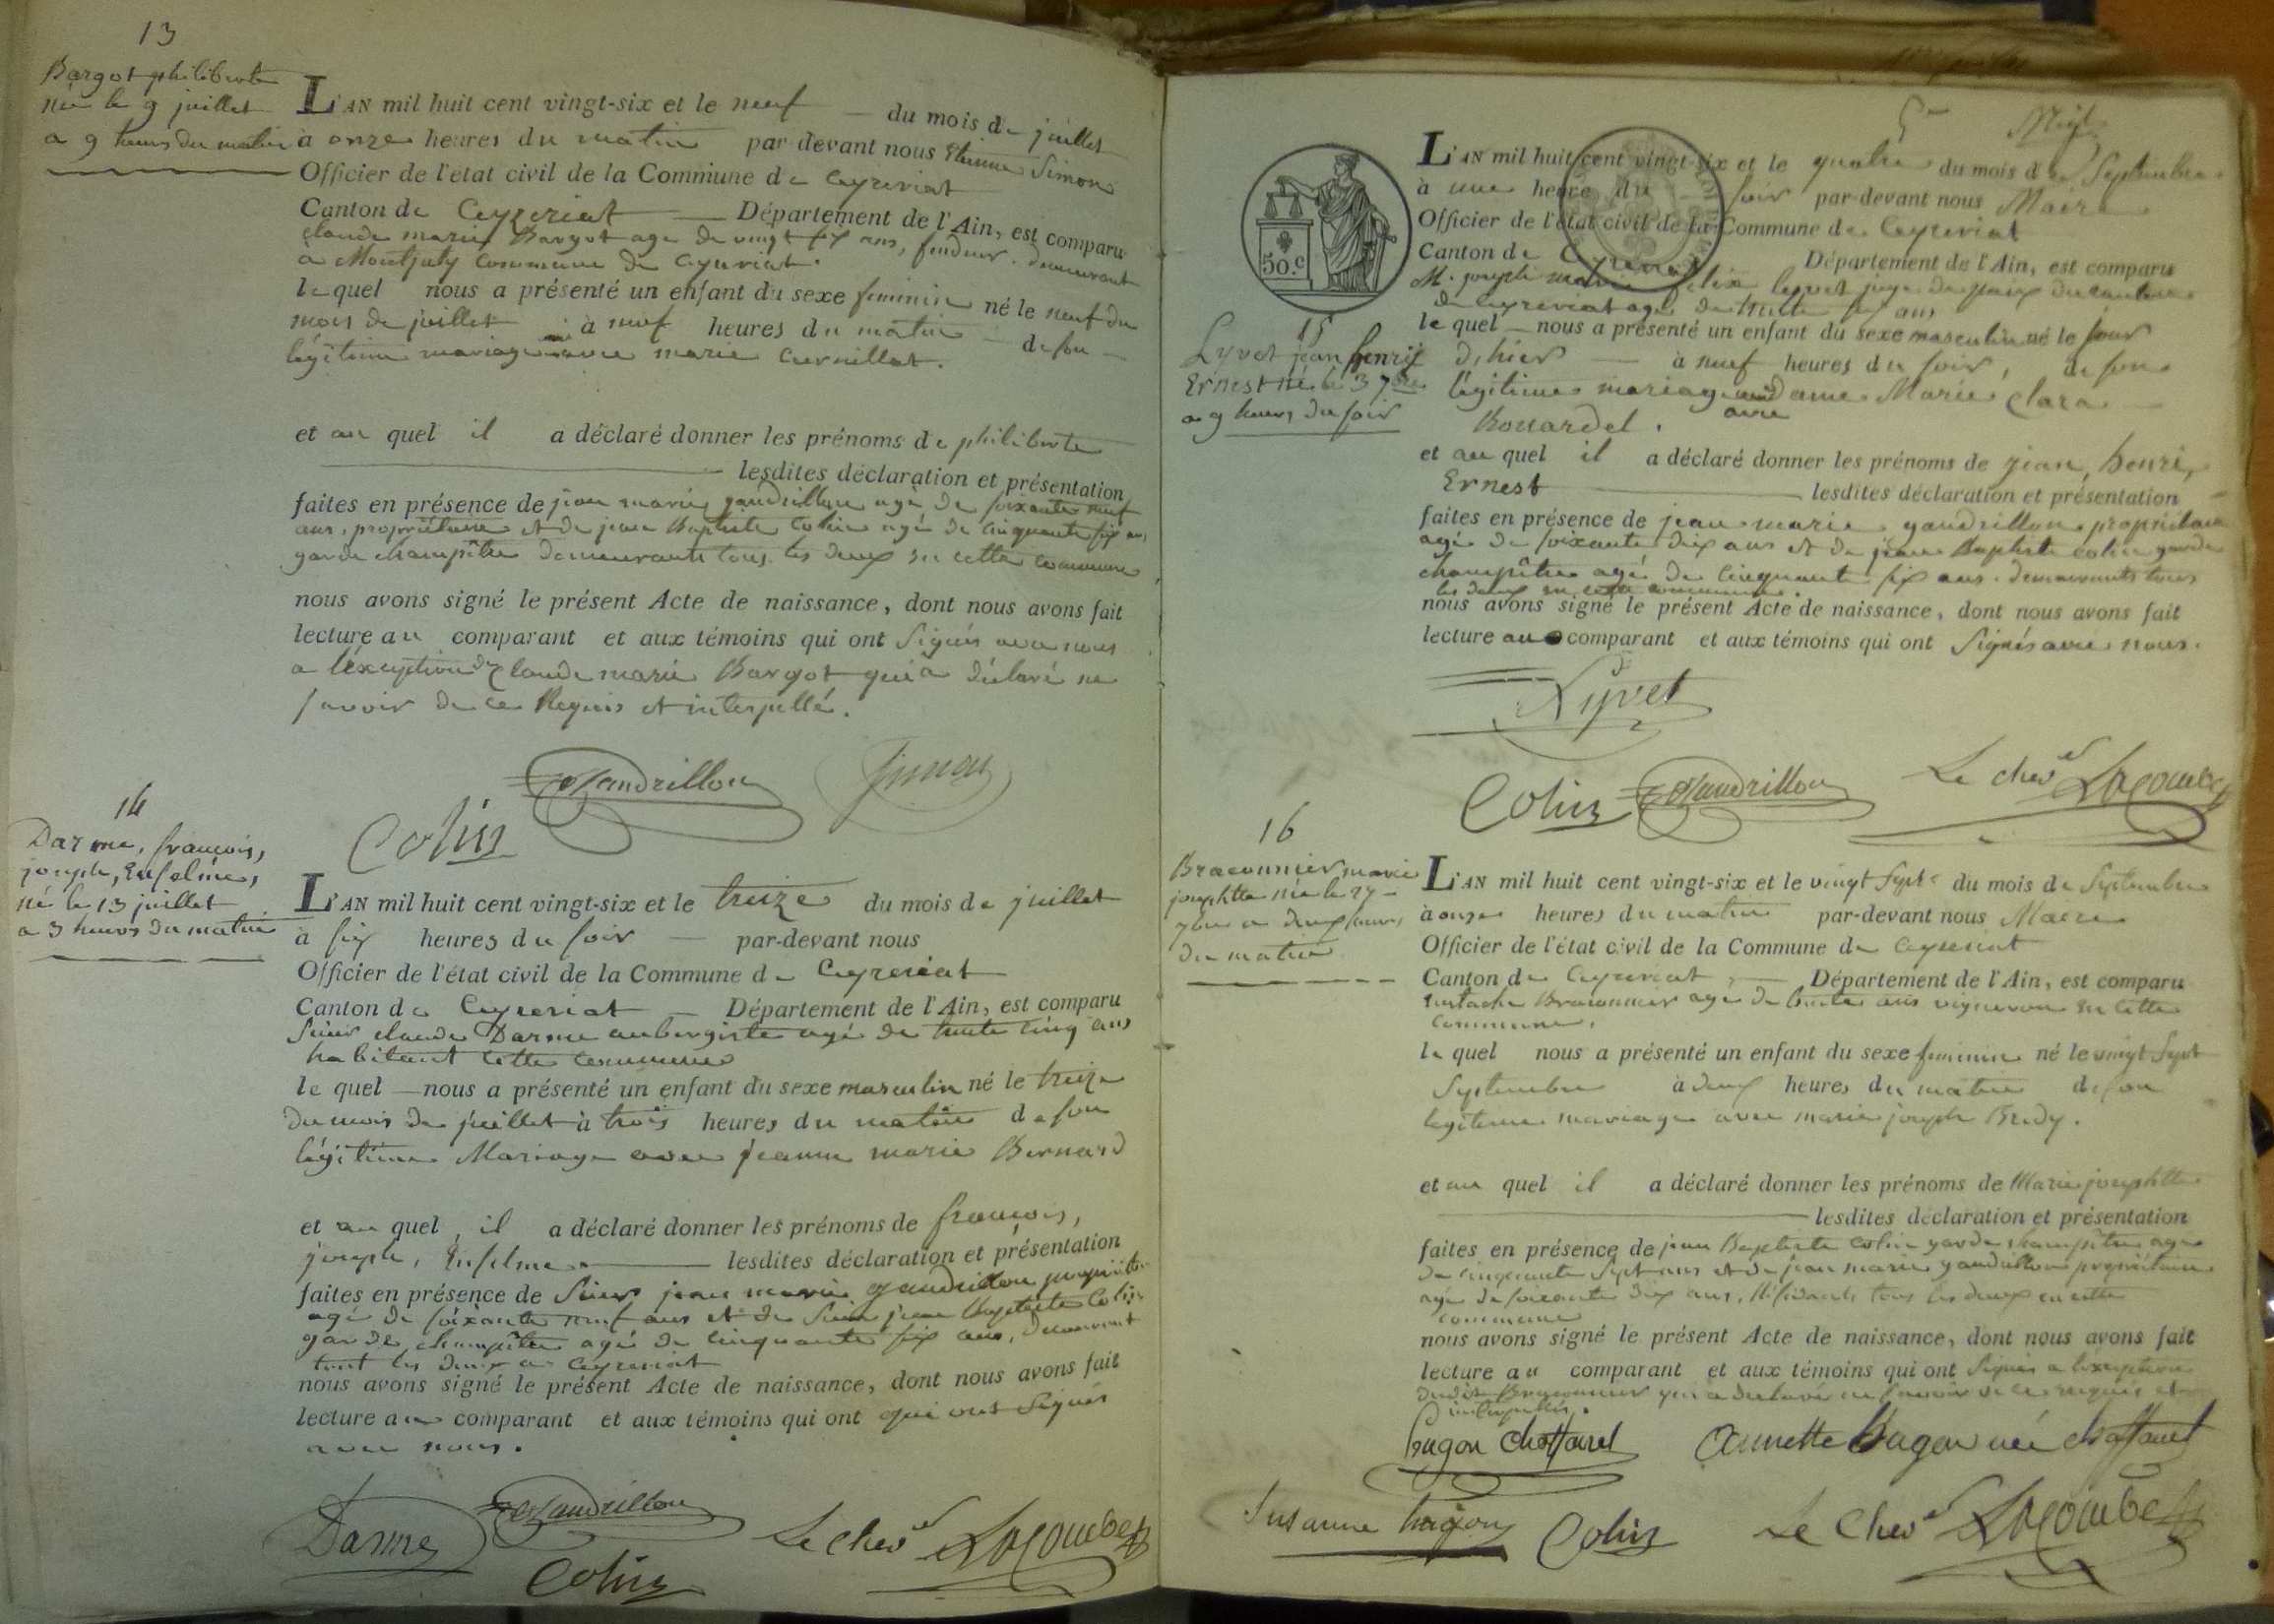 13
Bargot philiberte
née le 9 juillet
a 9 heures du matin
L'AN mil huit cent vingt-six et le neuf du mois de juillet
à onze heures du matin par devant nous Etienne Simon
Officier de l'état civil de la Commune de Ceyzeriat
Canton de Ceyzeriat Département de l'Ain, est comparu
claude marie Bargot age de vingt six ans, fendeur. demeurant
a Montjuly commune de Ceyzeriat.
lequel nous a présenté un enfant du sexe feminin né le neuf du
mois de juillet à neuf heures du matin de son
légitime mariage avec marie Cornillat.
et au quel il a déclaré donner les prénoms de philiberte
lesdites déclaration et présentation
faites en présence de jean marie gaudrillon agé de soixante neuf
ans, propriétaire et de jean Baptiste Colin agé de cinquante six ans
garde champêtre demeurants tous les deux en cette commune
nous avons signé le présent Acte de naissance, dont nous avons fait
lecture au comparant et aux témoins qui ont signés avec nous
a l'éxception de Claude marie Bargot qui a déclaré ne
savoir de ce Requis et interpellé.
Gaudrillon Simon
Colin
14
Darme, françois,
joseph, Enselme,
né le 13 juillet
a 3 heures du matin
L'AN mil huit cent vingt-six et le treize du mois de juillet
à six heures du soir par-devant nous
Officier de l'état civil de la Commune de Ceyzeriat
Canton de Ceyzeriat Département de l'Ain, est comparu
Sieur claude Darme aubergiste agé de trente cinq ans
habitant cette commune
lequel nous a présenté un enfant du sexe masculin né le treize
du mois de juillet à trois heures du matin de son
légitime Mariage avec jeanne marie Bernard
et au quel il a déclaré donner les prénoms de françois,
joseph, Enselme lesdites déclaration et présentation
faites en présence de Sieur jean marie gaudrillon propriétaire
agé de soixante neuf ans et de Sieur jean Baptiste Colin
garde champêtre agé de cinquante six ans, demeurant
tout les deux a Ceyzeriat
nous avons signé le présent Acte de naissance, dont nous avons fait
lecture au comparant et aux témoins qui ont qui ont signés
avec nous.
Darme Gaudrillon
Colin Le Chev.el Lacombe
50.c
L'AN mil huit cent vingt-six et le quatre du mois de Septembre
à une heure du soir par-devant nous Maire
Officier de l'état civil de la Commune de Ceyzeriat
Canton de Ceyzeriat Département de l'Ain, est comparu
M. joseph marie felix Lyvet juge de paix du canton
de Ceyzeriat agé de trente six ans
lequel nous a présenté un enfant du sexe masculin né le jour
d'hier à neuf heures du soir, de son
légitime mariage avec dame Marie Clara
Bouardel.
15
Lyvet jean henri
Ernest né le 3 7bre
a 9 heures du soir
et au quel il a déclaré donner les prénoms de jean, henri,
Ernest lesdites déclaration et présentation
faites en présence de jean marie gaudrillon propriétaire
agé de soixante dix ans et de jean Baptiste Colin garde
champêtre agé de cinquante six ans. demeurants tous
les deux en cette commune.
nous avons signé le présent Acte de naissance, dont nous avons fait
lecture au comparant et aux témoins qui ont Signés avec nous.
Lyvet
Colin Gaudrillon Le chev.el Lacombe
16
Braconnier marie
josephtte née le 27
7bre a deux heures
du matin
L'AN mil huit cent vingt-six et le vingt Sept du mois de Septembre
à onze heures du matin par-devant nous Maire
Officier de l'état civil de la Commune de Ceyzeriat
Canton de Ceyzeriat, Département de l'Ain, est comparu
Eustache Braconnier agé de trente ans vigneron en cette
commune.
lequel nous a présenté un enfant du sexe feminin né le vingt Sept
Septembre à deux heures du matin de son
legitime mariage avec marie joseph Bredy.
et au quel il a déclaré donner les prénoms de Marie josephtte
lesdites déclaration et présentation
faites en présence de jean Baptiste Colin garde champêtre agé
de cinquante Sept ans et de jean marie gaudrillon propriétaire
agé de soixante dix ans, Résidants tous les deux en cette
commune
nous avons signé le présent Acte de naissance, dont nous avons fait
lecture au comparant et aux témoins qui ont Signés a l'exception
dudit Braconnier qui a declaré ne savoir de ce requis et
interpellé.
hugon Chaffarel Annette hugon née chaffarel
Susanne hugon Colin Le Chev.el Lacombe